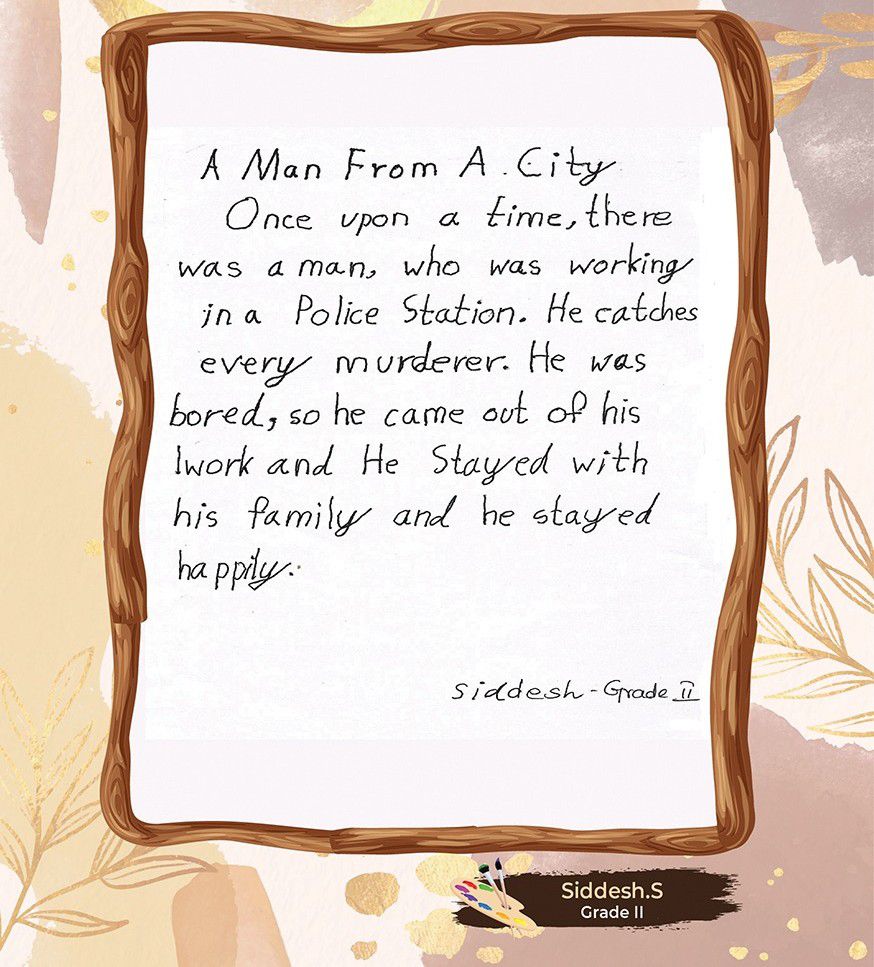 A Man From A . City
Once upon a time, there
was a man, who was working
in a Police Station. He catches
every murderer. He was
bored, so he came out of his
work and He Stayed with
his family and he stayed
happily.
Siddesh - Grade II
Siddesh.S
Grade II